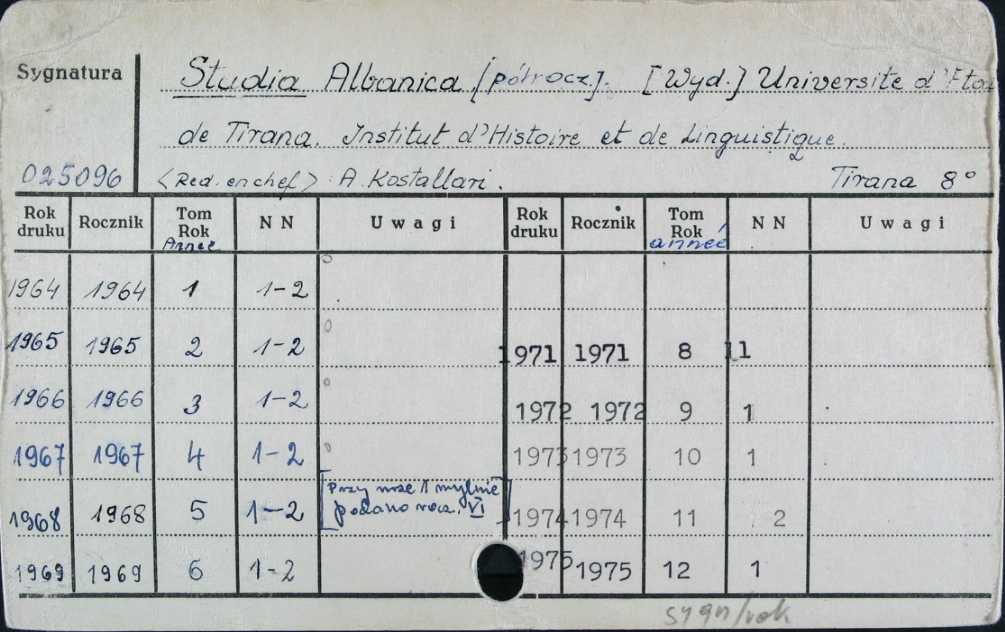 Sygnatura
Studia Albanica [półrocz.]. [Wyd.] Universite d'Etat
de Tirana. Institut d'Histoire et de Linguistique.
025096 <Red. en chef> A. Kostallari. Tirana 8°
Rok druku Rocznik Tom Rok Année N N Uwagi Rok druku Rocznik Tom Rok année N N Uwagi
1964 1964 1 1-2
1965 1965 2 1-2 1971 1971 8 1
1966 1966 3 1-2 1972 1972 9 1
1967 1967 4 1-2 1973 1973 10 1
1968 1968 5 1-2 [Przy nrze 1 mylnie podano rocz. VI] 1974 1974 11 2
1969 1969 6 1-2 1975 1975 12 1
sygn/rok